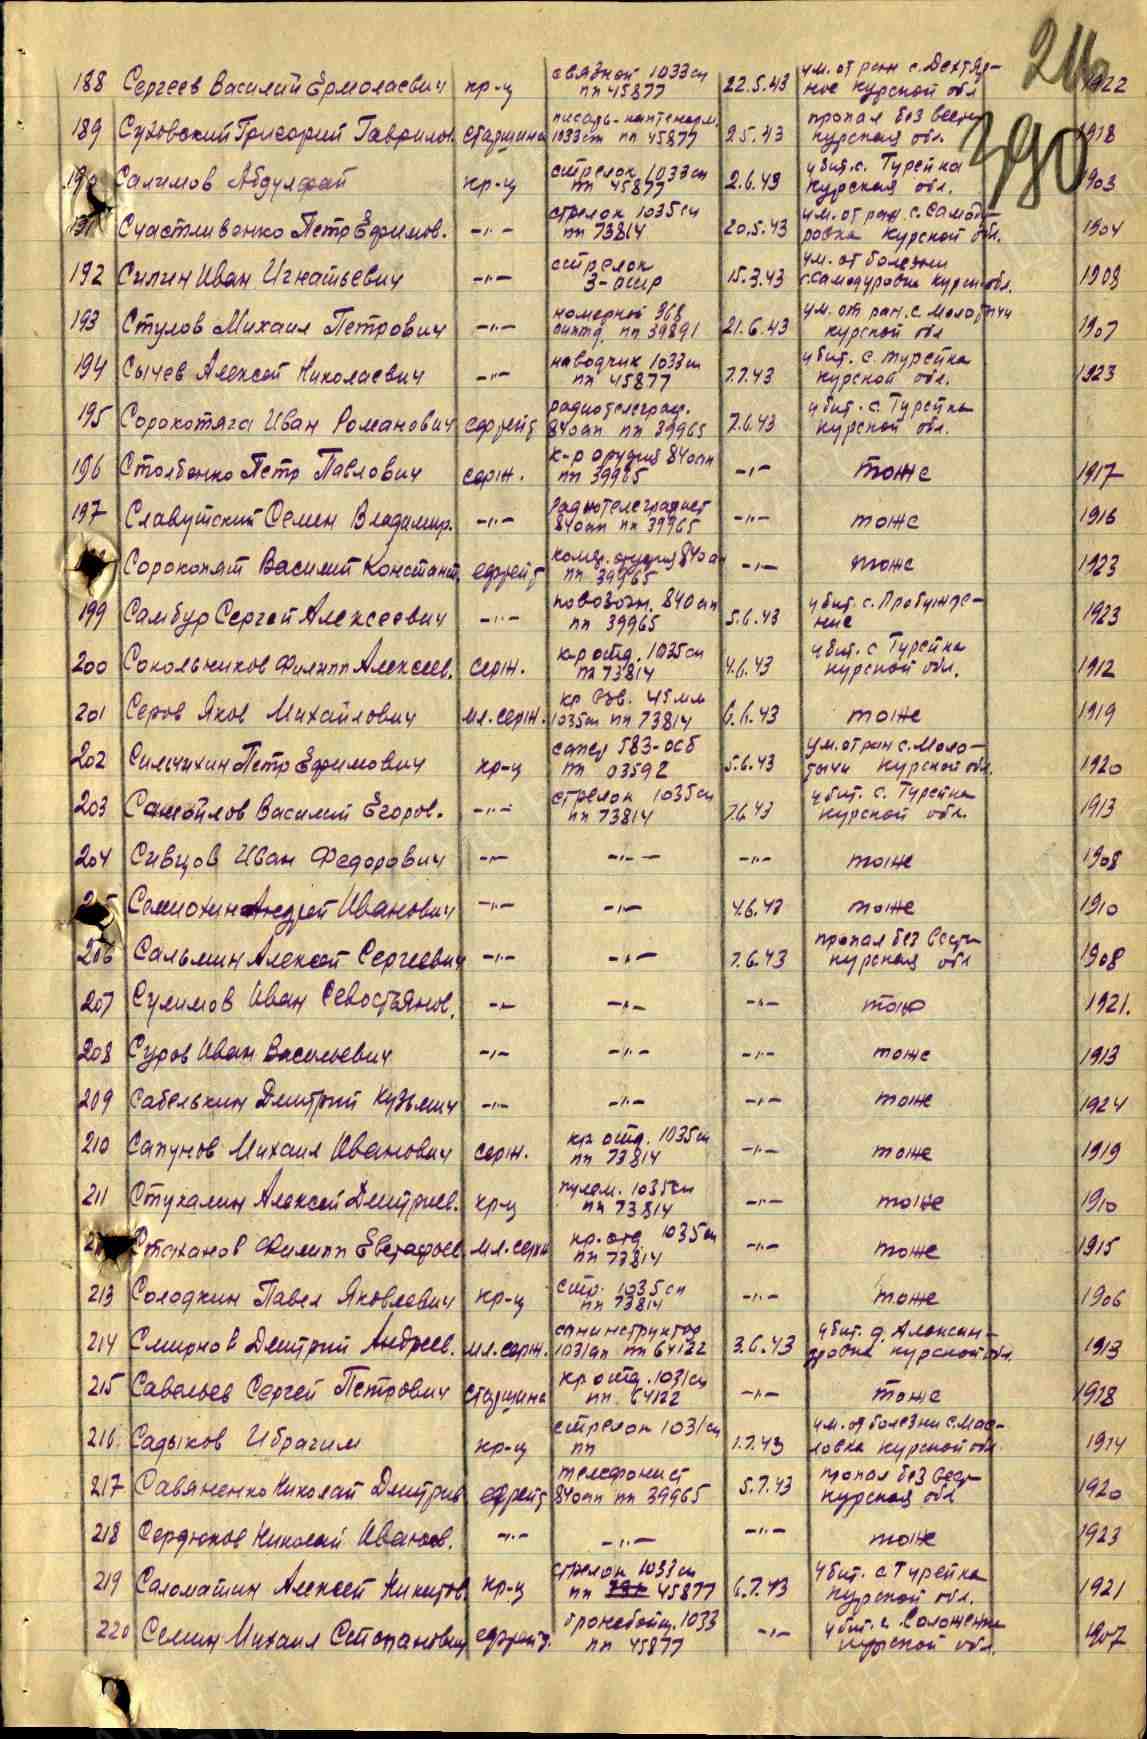 216
390
188 Сергеев Василий Ермолаевич кр-ц связной 1033сп пп 45877 22.5.43 ум. от ран с. Дехтяр-ное Курской обл 1922
189 Суховский Григорий Гаврилов. старшина писарь-каптенарм. 1033сп пп 45877 2.5.43 пропал без вести Курская обл. 1918
190 Салимов Абдулфай кр-ц стрелок 1033сп пп 45877 2.6.43 убит. с. Турейка Курская обл. 1903
191 Счастливенко Петр Ефимов. -"- стрелок 1035сп пп 73814 20.5.43 ум. от ран. с. Самоду-ровка Курской обл. 1904
192 Силин Иван Игнатьевич -"- стрелок 15.3.43 ум. от болезни с. Самодуровка Курск. обл. 1908
193 Стулов Михаил Петрович -"- номерной 368 оиптд. пп 39891 21.6.43 ум. от ран. с. Молотычи Курской обл 1907
194 Сычев Алексей Николаевич -"- наводчик 1033сп пп 45877 7.7.43 убит. с. Турейка Курской обл. 1923
195 Сорокотяга Иван Романович ефрейт радиотелеграф. 840ап пп 39965 7.6.43 убит. с. Турейка Курской обл.
196 Столбенко Петр Павлович серж. к-р орудия 840ап пп 39965 -"- тоже 1917
197 Славутский Семен Владимир. -"- радиотелеграфист 840ап пп 39965 -"- тоже 1916
Сорокопят Василий Констант. ефрейт команд. орудия 840ап пп 39965 -"- тоже 1923
199 Самбур Сергей Алексеевич -"- повозочн. 840ап пп 39965 5.6.43 убит. с. Пробужде-ние 1923
200 Сокольников Филипп Алексеев. серж. к-р отд. 1035сп пп 73814 4.6.43 убит. с Турейка Курской обл. 1912
201 Серов Яков Михайлович мл. серж. кр 45мм 1035сп пп 73814 6.6.43 тоже 1919
202 Сильчихин Петр Ефимович кр-ц сапер 583-осб пп 03592 5.6.43 ум. от ран с. Моло-тычи Курской обл. 1920
203 Самойлов Василий Егоров. -"- стрелок 1035сп пп 73814 7.6.43 убит. с. Турейка Курской обл. 1913
204 Сивцов Иван Федорович -"- -"- -"- тоже 1908
205 Семиохин Андрей Иванович -"- -"- 4.6.43 тоже 1910
206 Сальмин Алексей Сергеевич -"- -"- 7.6.43 пропал без вести Курская обл 1908
207 Сулимов Иван Севостьянов. -"- -"- -"- тоже 1921.
208 Суров Иван Васильевич -"- -"- -"- тоже 1913
209 Сабелькин Дмитрий Кузьмич -"- -"- -"- тоже 1924
210 Сапунов Михаил Иванович серж. кр отд. 1035сп пп 73814 -"- тоже 1919
211 Стукалин Алексей Дмитриев. кр-ц пулем. 1035сп пп 73814 -"- тоже 1910
Стаканов Филипп Евстафьев. мл. серж кр. отд 1035сп пп 73814 -"- тоже 1915
213 Солодкин Павел Яковлевич кр-ц стр. 1035сп пп 73814 -"- тоже 1906
214 Смирнов Дмитрий Андреев. мл. серж. санинструктор 1031ап пп 64122 3.6.43 убит. д. Алексан-дровка Курской обл. 1913
215 Савельев Сергей Петрович старшина кр отд. 1031сп пп. 64122 -"- тоже 1918
216. Садыков Ибрагим кр-ц стрелок 1031сп пп 1.7.43 ум. от болезни с. Мас-ловка Курской обл. 1914
217 Савяненко Николай Дмитрив ефрейт телефонист 840ап пп 39965 5.7.43 пропал без вести Курская обл 1920
218 Сердюков Николай Иванов. -"- -"- -"- тоже 1923
219 Саломатин Алексей Никитов. кр-ц стрелок 1033сп пп 45877 6.7.43 убит. с Турейка Курской обл. 1921
220 Семин Михаил Степанович ефрейт. бронебойщ. 1033 пп 45877 -"- убит. с. Курской обл. 1907